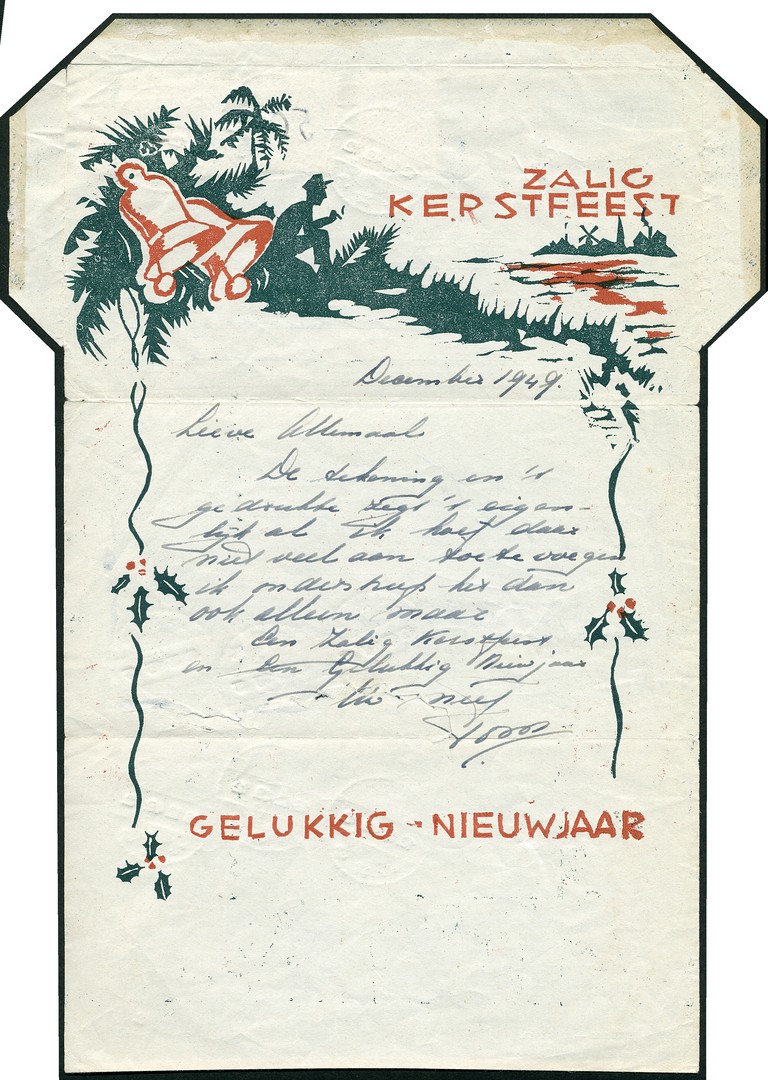 ZALIG
KERSTFEEST
December 1949.
Lieve Allemaal
De tekening en 't
gedrukte zegt 't eigen-
lijk al ik hoef daar
niet veel aan toe te voegen
ik onderstreep het dan
ook alleen maar
Een Zalig Kerstfeest
en Een Gelukkig Nieuwjaar
Uw neef
GELUKKIG - NIEUWJAAR